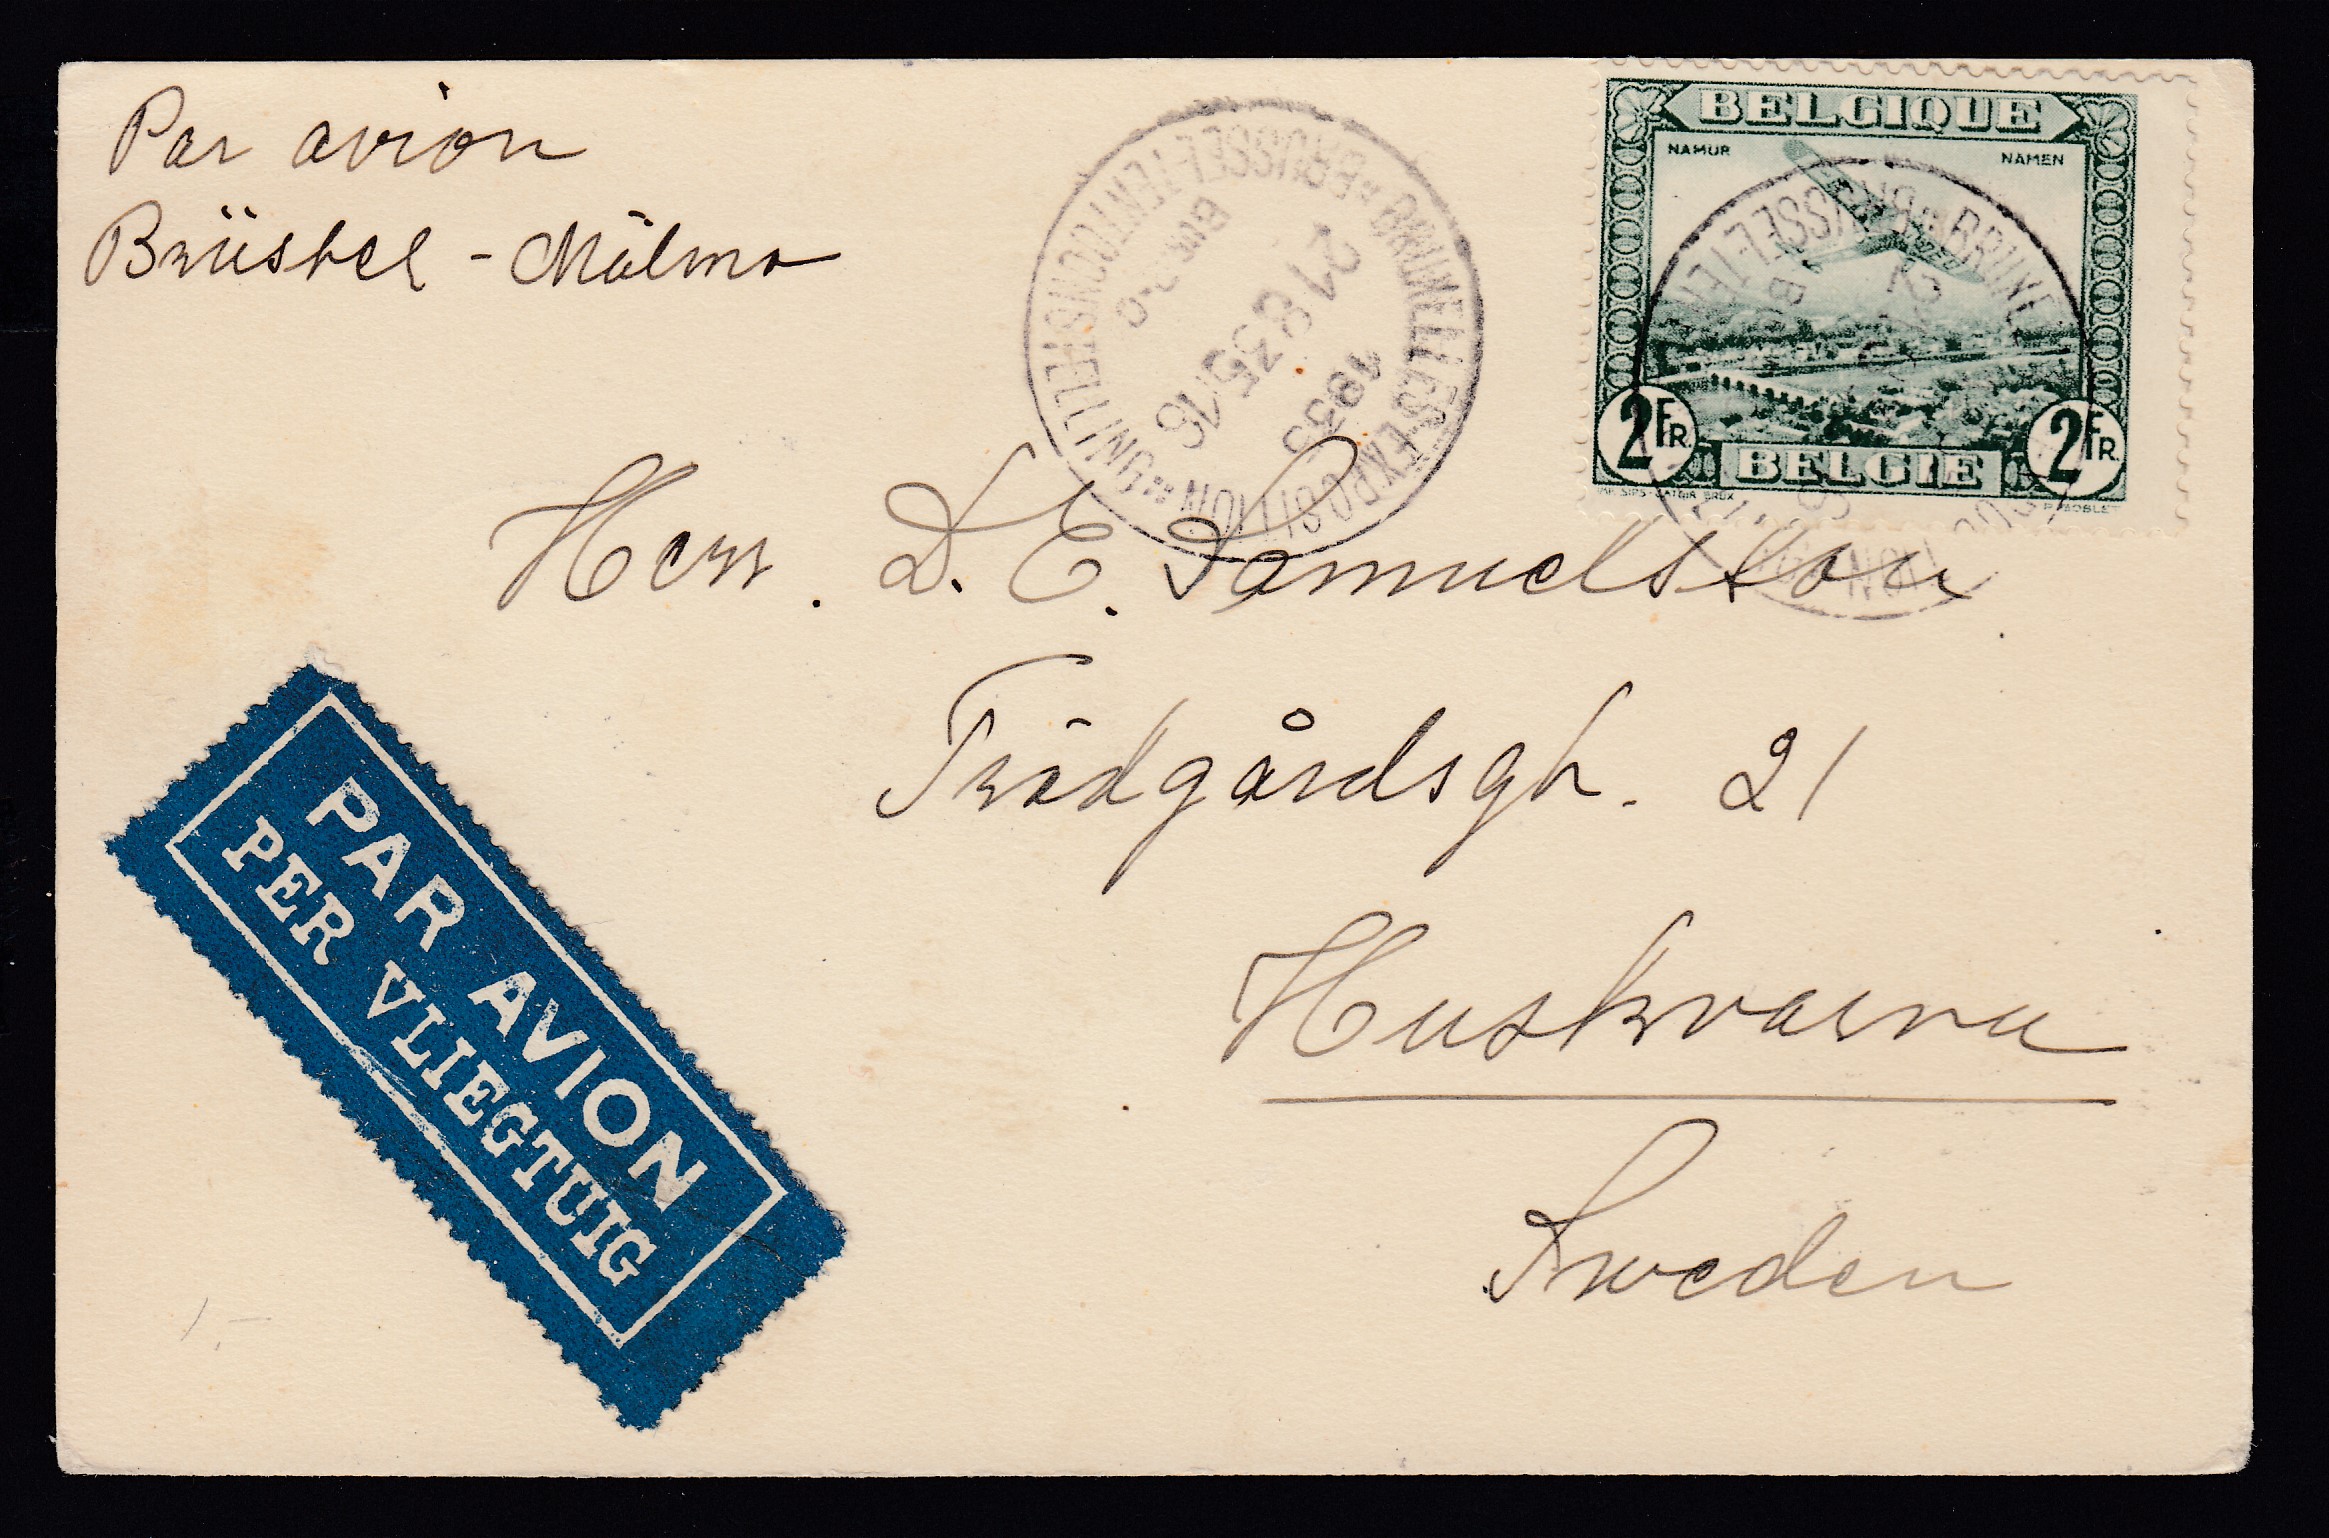 Par avion
Brüssel - Malmö
BRUXELLES-EXPOSITION
BRUSSEL-TENTOONSTELLING
21 8 35 16
1935
BELGIQUE
NAMUR NAMEN
2 FR. 2 FR.
BELGIE
Herr. D. E. Samuelsson
Trädgårdsg. 21
Huskvarna
Sweden
PAR AVION
PER VLIEGTUIG